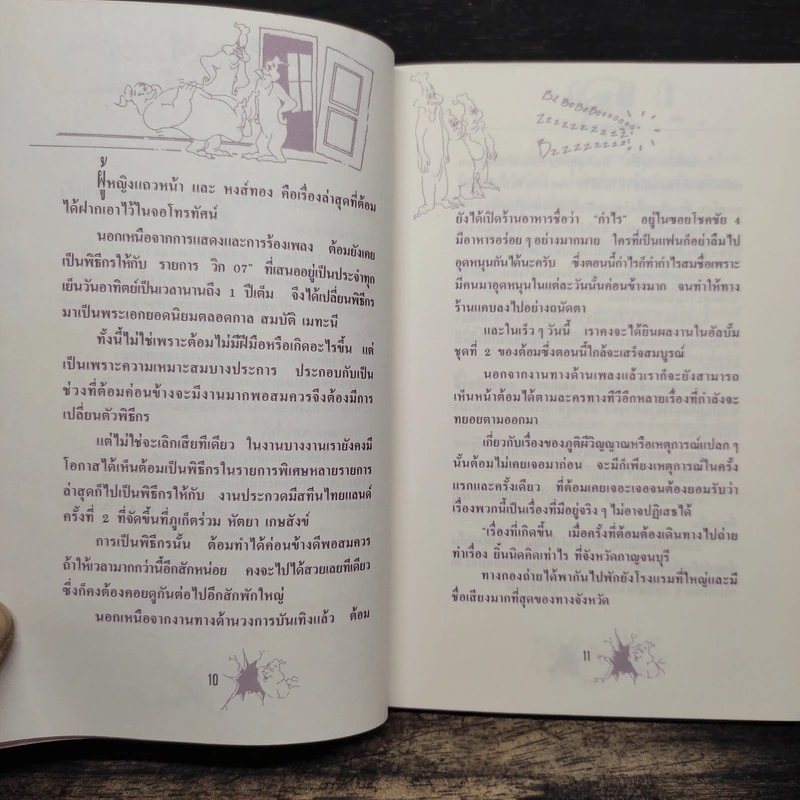 ผู้หญิงแถวหน้า และ หงส์ทอง คือเรื่องล่าสุดที่ต้อม
ได้ฝากเอาไว้ในจอโทรทัศน์
นอกเหนือจากการแสดงและการร้องเพลง ต้อมยังเคย
เป็นพิธีกรให้กับ รายการ วิก 07" ที่เสนออยู่เป็นประจำทุก
เย็นวันอาทิตย์เป็นเวลานานถึง 1 ปีเต็ม จึงได้เปลี่ยนพิธีกร
มาเป็นพระเอกยอดนิยมตลอดกาล สมบัติ เมทะนี
ทั้งนี้ไม่ใช่เพราะต้อมไม่มีฝีมือหรือเกิดอะไรขึ้น แต่
เป็นเพราะความเหมาะสมบางประการ ประกอบกับเป็น
ช่วงที่ต้อมค่อนข้างจะมีงานมากพอสมควรจึงต้องมีการ
เปลี่ยนตัวพิธีกร
แต่ไม่ใช่จะเลิกเสียทีเดียว ในงานบางงานเรายังคงมี
โอกาสได้เห็นต้อมเป็นพิธีกรในรายการพิเศษหลายรายการ
ล่าสุดก็ไปเป็นพิธีกรให้กับ งานประกวดมีสทีนไทยแลนด์
ครั้งที่ 2 ที่จัดขึ้นที่ภูเก็ตร่วม หัตยา เกษสังข์
การเป็นพิธีกรนั้น ต้อมทำได้ค่อนข้างดีพอสมควร
ถ้าให้เวลามากกว่านี้อีกสักหน่อย คงจะไปได้สวยเลยทีเดียว
ซึ่งก็คงต้องคอยดูกันต่อไปอีกสักพักใหญ่
นอกเหนือจากงานทางด้านวงการบันเทิงแล้ว ต้อม
10
BZBOBOBOOOOOOO
ZZZZZZZZZZZ!
BZZZZZZZZZ!
ยังได้เปิดร้านอาหารชื่อว่า "กำไร" อยู่ในซอยโชคชัย 4
มีอาหารอร่อยๆ อย่างมากมาย ใครที่เป็นแฟนก็อย่าลืมไป
อุดหนุนกันได้นะครับ ซึ่งตอนนี้กำไรก็ทำกำไรสมชื่อเพราะ
มีคนมาอุดหนุนในแต่ละวันนั้นค่อนข้างมาก จนทำให้ทาง
ร้านแคบลงไปอย่างถนัดตา
และในเร็วๆ วันนี้ เราคงจะได้ยินผลงานในอัลบั้ม
ชุดที่ 2 ของต้อมซึ่งตอนนี้ใกล้จะเสร็จสมบูรณ์
นอกจากงานทางด้านเพลงแล้วเราก็จะยังสามารถ
เห็นหน้าต้อมได้ตามละครทางทีวีอีกหลายเรื่องที่กำลังจะ
ทยอยตามออกมา
เกี่ยวกับเรื่องของภูติผีวิญญาณหรือเหตุการณ์แปลกๆ
นั้นต้อมไม่เคยเจอมาก่อน จะมีก็เพียงเหตุการณ์ในครั้ง
แรกและครั้งเดียว ที่ต้อมเคยเจอะเจอจนต้องยอมรับว่า
เรื่องพวกนี้เป็นเรื่องที่มีอยู่จริงๆ ไม่อาจปฏิเสธได้
"เรื่องที่เกิดขึ้น เมื่อครั้งที่ต้อมต้องเดินทางไปถ่าย
ทำเรื่อง ยิ้มนิดคิดเท่าไร ที่จังหวัดกาญจนบุรี
ทางกองถ่ายได้พากันไปพักยังโรงแรมที่ใหญ่และมี
ชื่อเสียงมากที่สุดของทางจังหวัด
11